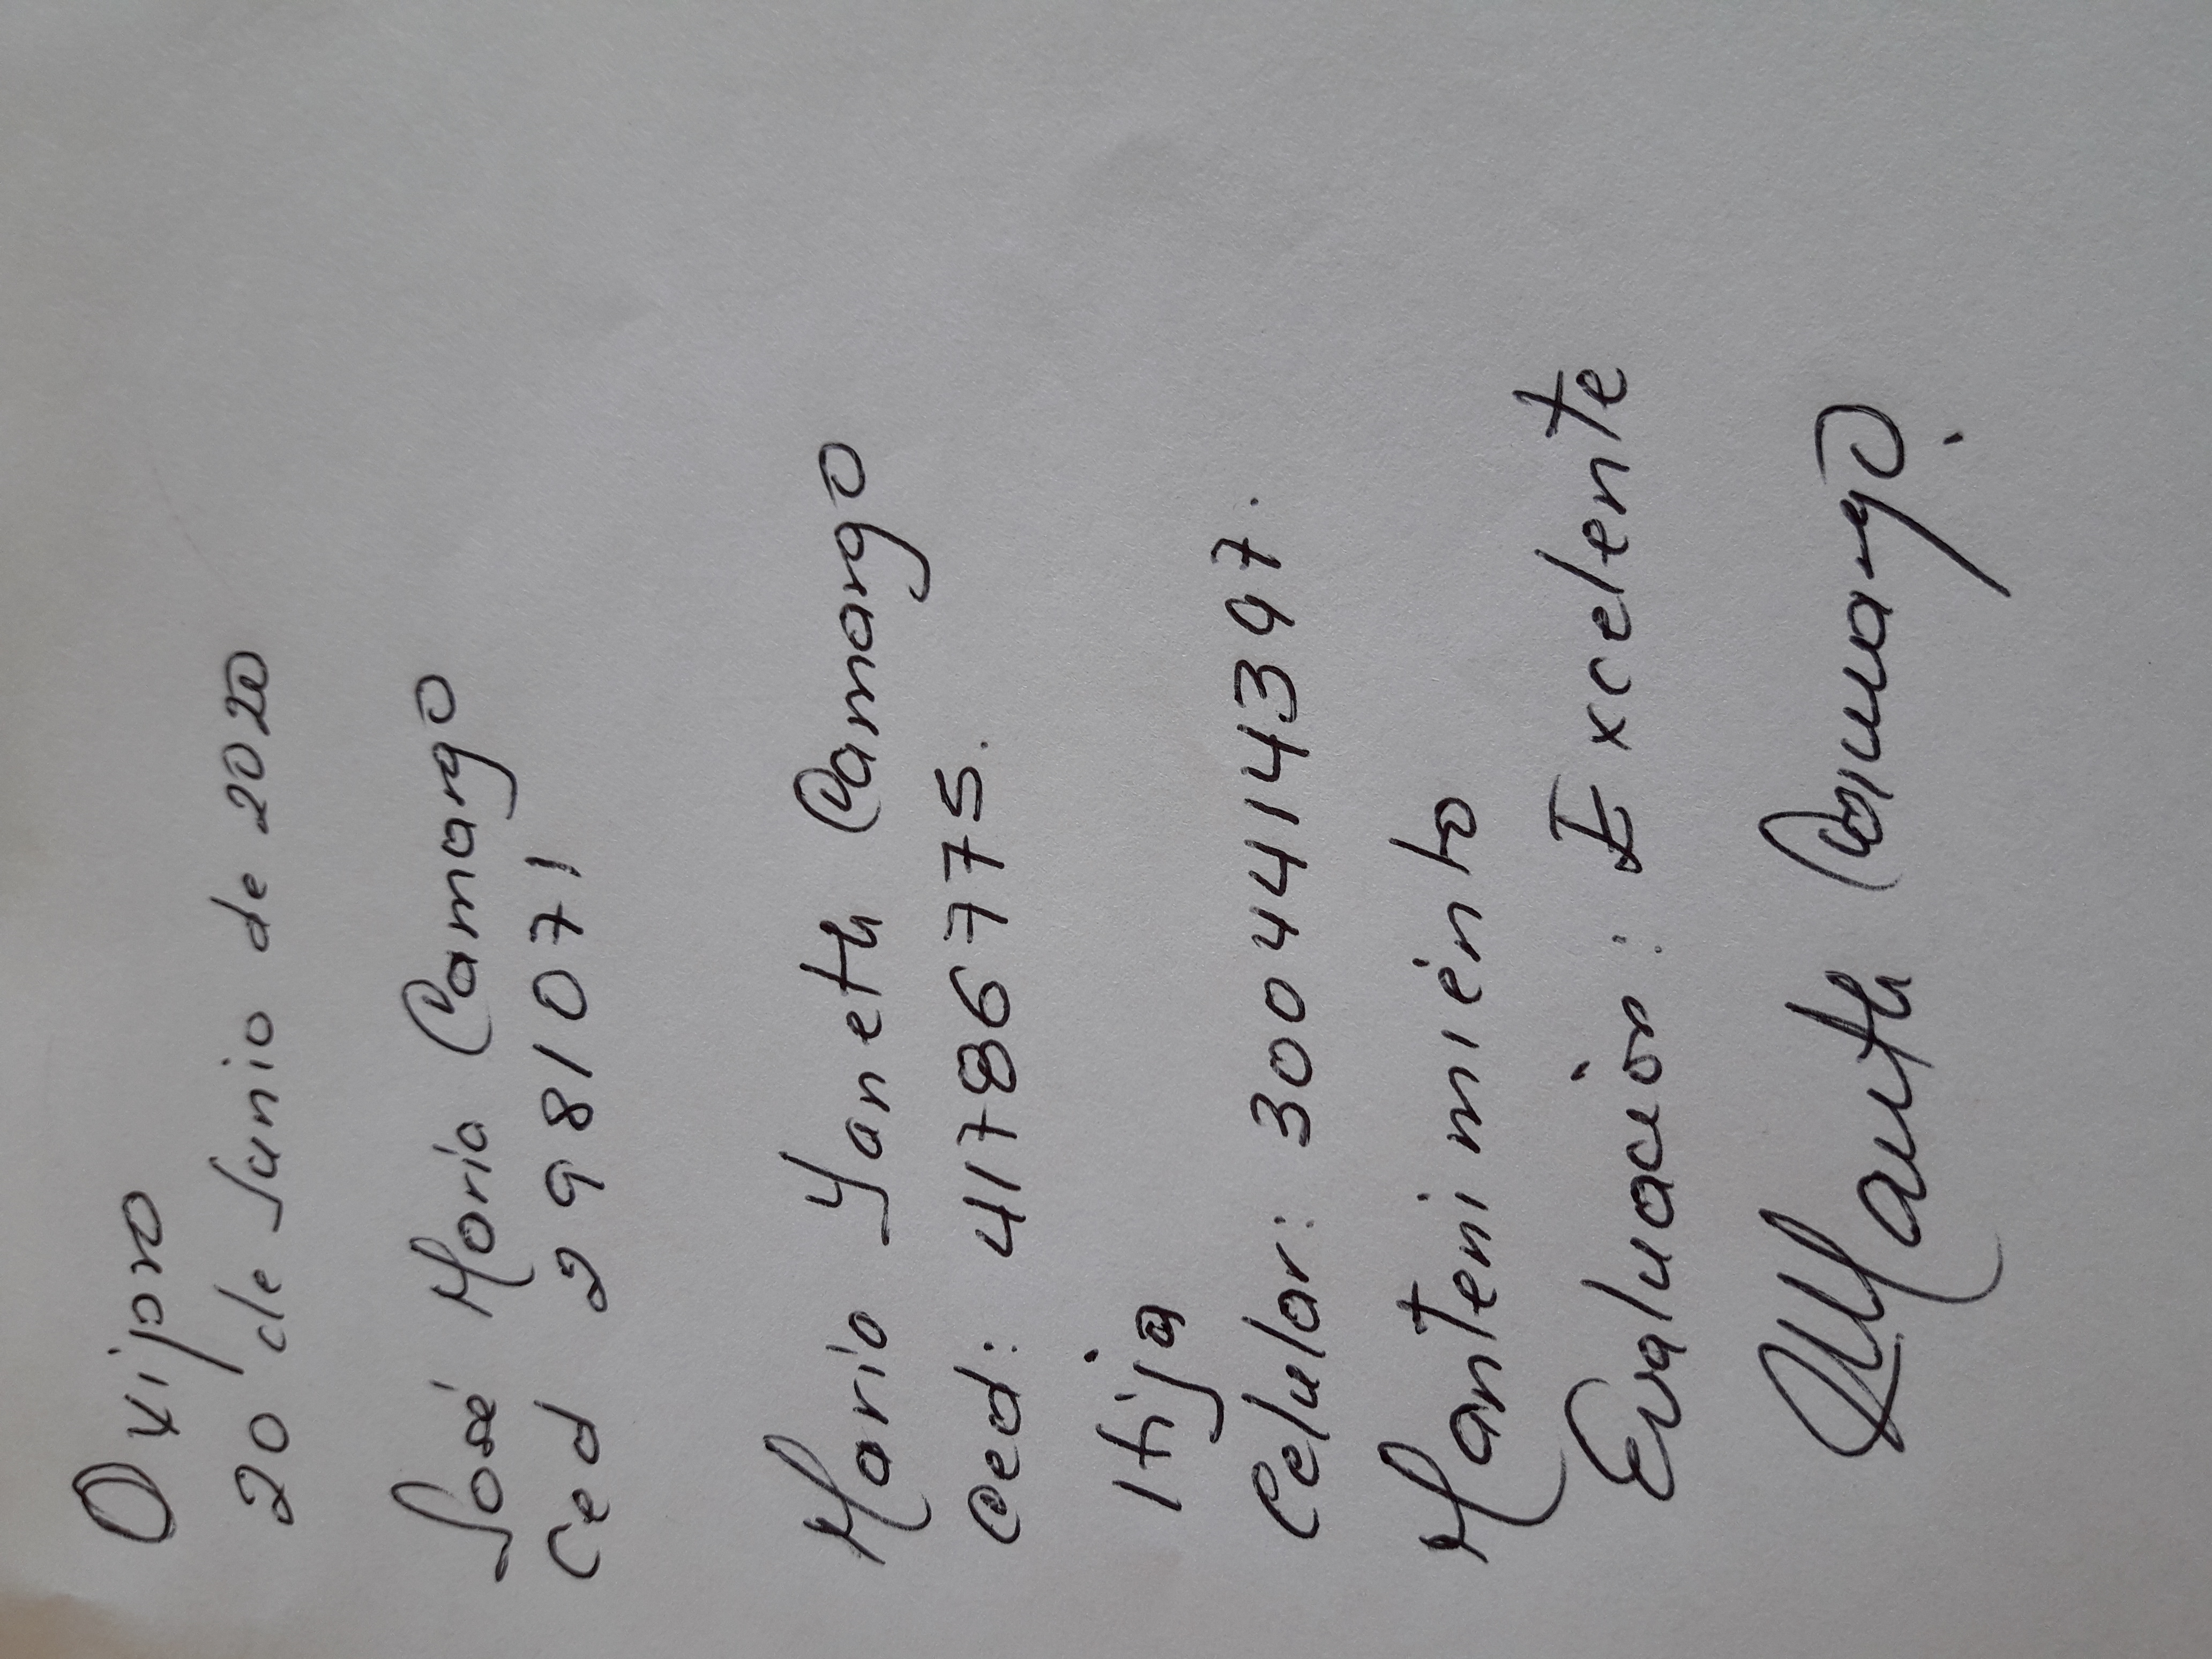 Oxipro
20 de Junio de 2020
José María Camargo
Ced 2981071
María Yaneth Camargo
Ced: 41786775.
Hija
Celular: 3004414397.
Mantenimiento
Evaluación: Excelente
Camargo.